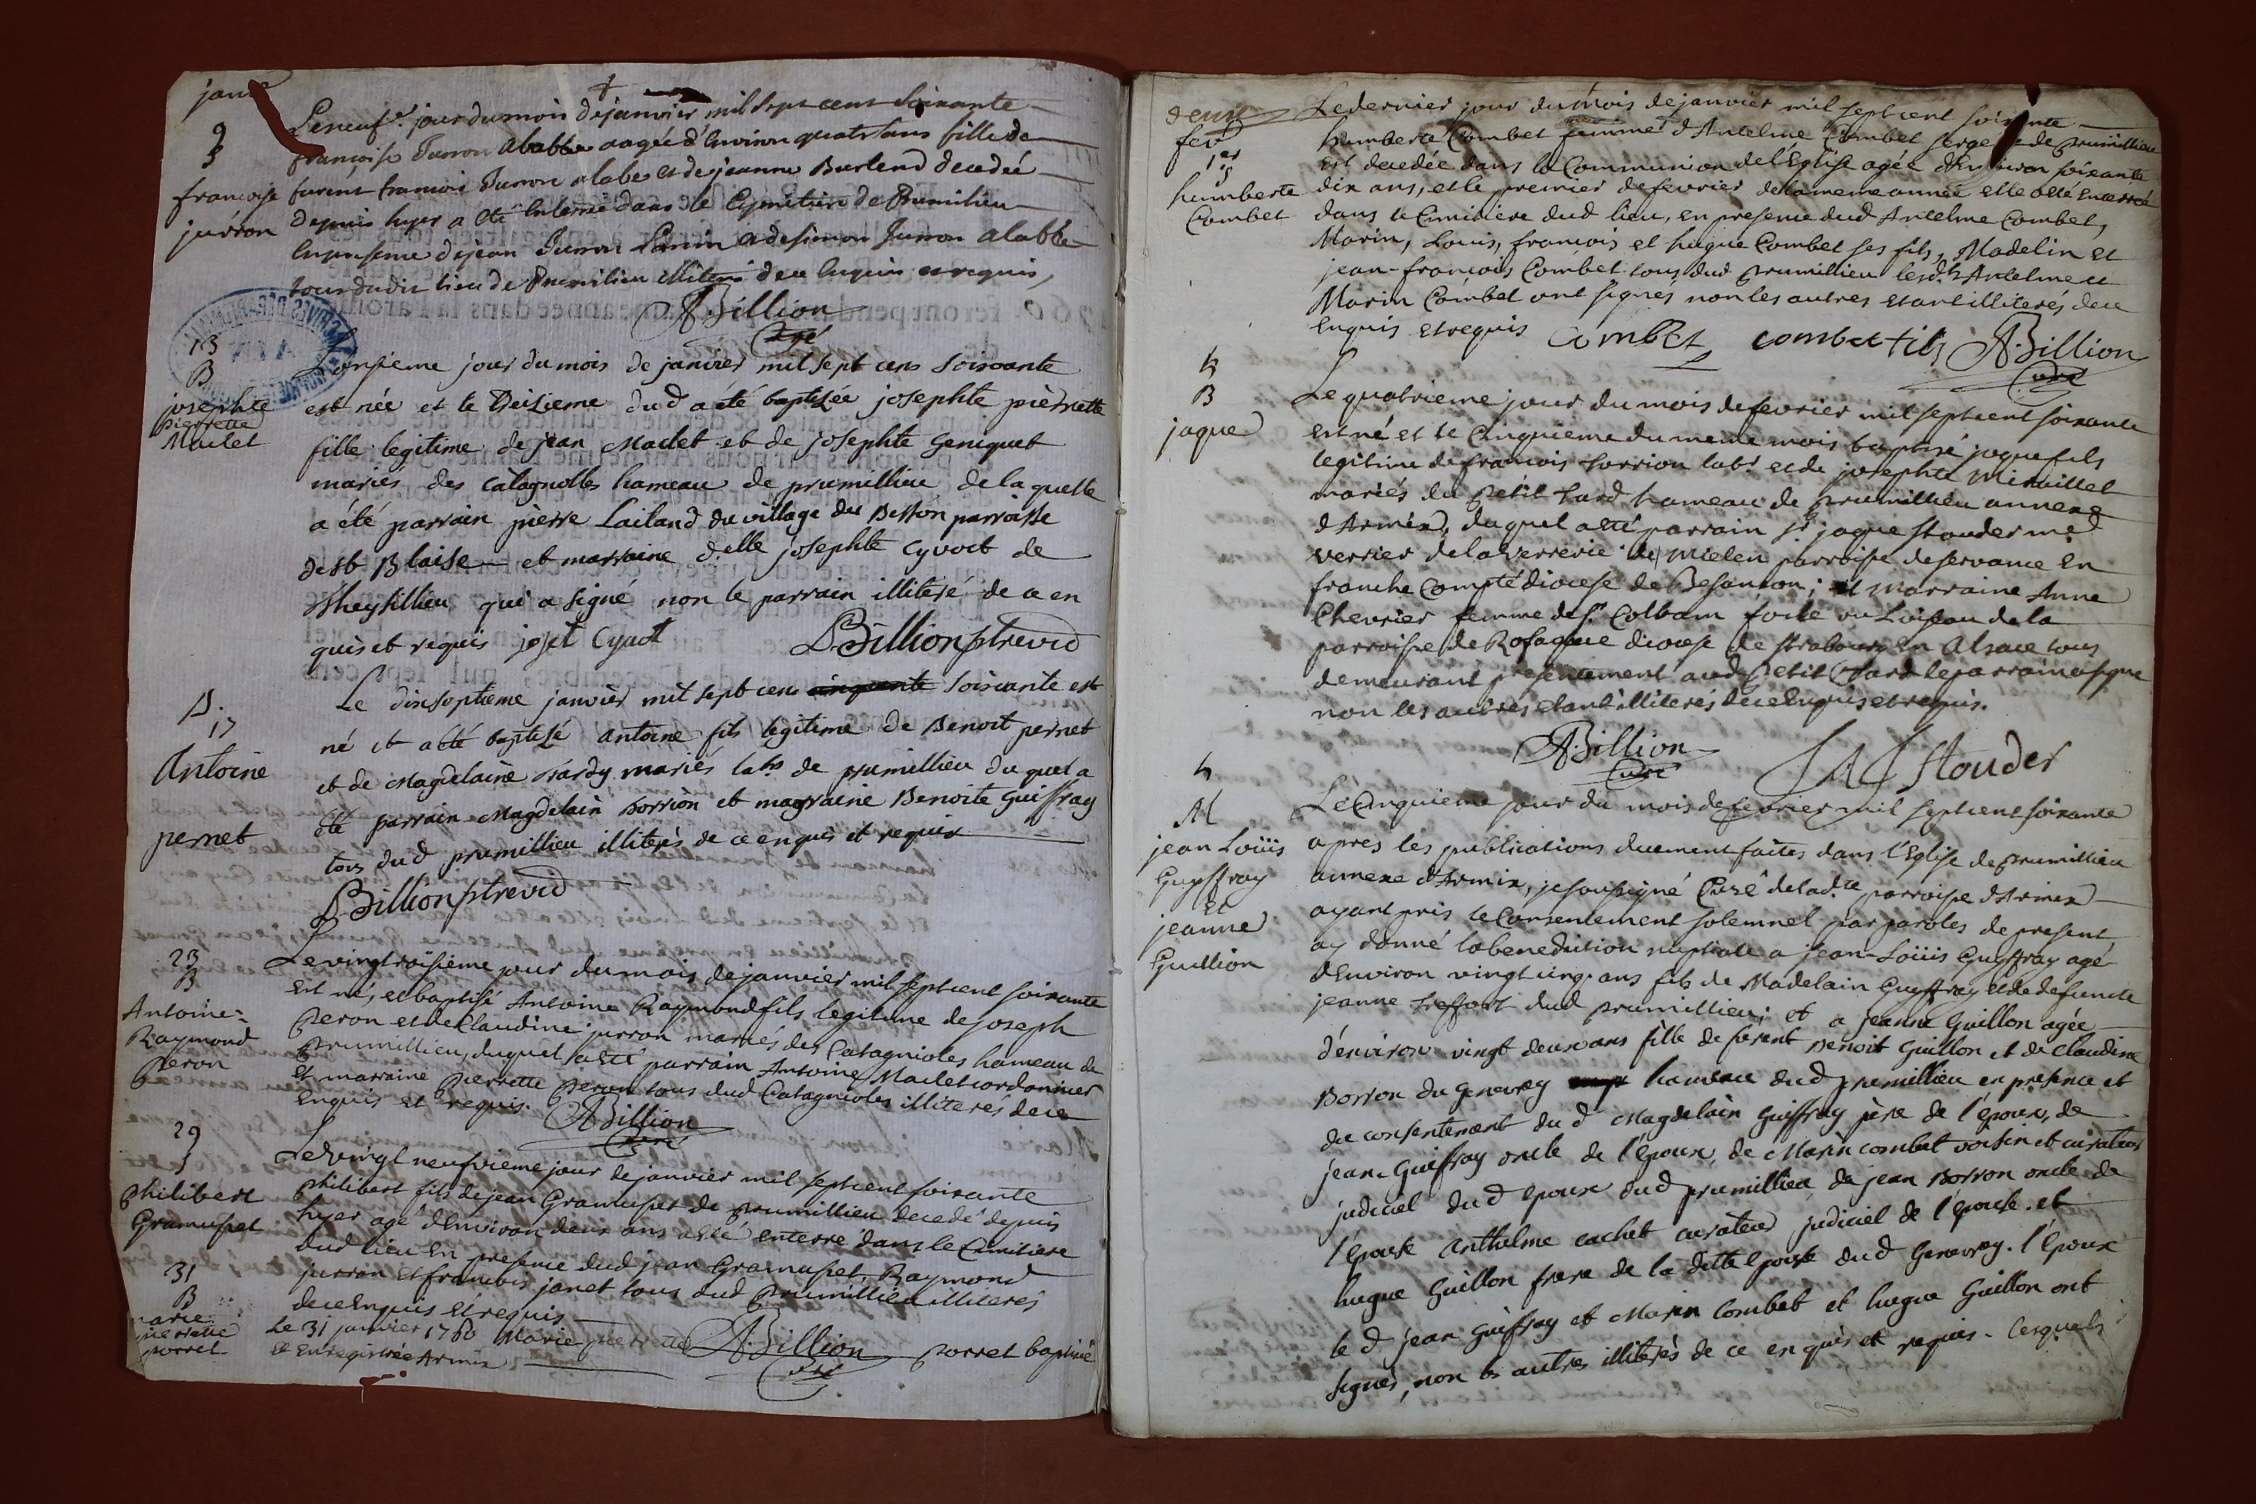 janv
9
S
francoise
jurron
Le neufe. jour du mois de janvier mil sept cent soixante
françoise Jurron alabbe aagée d'Environ quatr'ans fille de
furent francois Jurron alabe et de jeanne Burlend decedée
depuis hyer a eté Enterrée dans le Cymetiere de Prumilieu
En presence de jean Jurron Parrin et de simon Jurron alabbe
tous dudit lieu de Prumilieu illiterés de ce Enquis et requis,
A. Billion
Curé
13
B
josephte
pierrette
Maclet
L'onzieme jour du mois de janvier mil sept cens soixante
est née et le treizieme dud a été baptizée josephte pierrette
fille legitime de jean Maclet et de josephte Geniquet
mariés des Catagnolles hameau de prumillieu de la quelle
a été parrain pierre Lailand du village du Besson parroisse
de st Blaise et marraine delle josephte Cyvoct de
Cheysillieu qui a signé non le parrain illiteré de ce en
quis et requis josét Cyvoct Billion ptre vic
B.
17
Antoine
pernet
Le dix septieme janvier mil sept cens cinquante soixante est
né et a été baptizé antoine fils legitime de Benoit pernet
et de Magdelaine hardy mariés labrs de prumillieu du quel a
été parrain Magdelain Borrion et marraine Benoite Guiffray
tous dud prumillieu illiterés de ce enquis et requis
Billion ptre vic
23
B
Antoine
Raymond
Peron
Le vingt roisieme jour du mois de janvier mil sept cent soixante
est né, et baptisé Antoine Raymond fils legitime de joseph
Peron et de Claudine jurron mariés des Catagnioles hameau de
Prumillieu, duquel a eté parrain Antoine Maclet cordonnier
et marraine Pierrette Peron tous dud Catagnioles illiterés de ce
Enquis et requis. A. Billion
Curé
29
S
Philibert
Gramuset
Le vingt neufvieme jour de janvier mil sept cent soixante
Philibert fils de jean Gramuset de Prumillieu decedé depuis
hyer agé d'Environ deux ans a eté enterre dans le Cimitiere
dud lieu En presence dud jean Gramuset, Raymond
jurron et francois janet tous dud Prumillieu illiterés
de ce Enquis et requis
A. Billion
Curé
31
B
marie
pierrette
porret
Le 31 janvier 1760 Marie pierrette porret baptisée
et Enregistrée Armix
fevr
1er
S
humberte
Combet
Le dernier jour du mois de janvier mil sept cent soixante
humberte Combet femme d'Antelme Combet serge de Prumillieu
est decedée dans la Communion de l'Eglise agée d'Environ soixante
dix ans, et le premier de fevrier de la meme année elle a eté enterrée
dans le Cimitiere dud lieu, en presence dud Antelme Combet,
Marin, Louis, francois et hugue Combet ses fils, Madelin et
jean-francois Combet tous dud prumillieu lesds Antelme et
Marin Combet ont signés non les autres etant illiterés de ce
Enquis et requis Combet combet fils A. Billion
Curé
4
B
jaque
Le quatrieme jour du mois de fevrier mil sept cent soixante
est né et le Cinquieme du meme mois baptisé jaque fils
legitime de francois horrion labr et de josephte Miraillet
mariés du Petit hard hameau de prumillieu annexe
d'Armix, duquel a eté parrain sr jaque Stouder md
verrier de la verrerie de Mielen parroisse de servance En
franche Compté diocese de Besançon; et marraine Anne
Chevrier femme de sr Colbam foile ou Loiseau de la
parroisse de Rofaque diocese de strabourg En Alsace tous
demeurant presentement aud Petit hard le parrain a signé
non les autres etant illiterés de ce Enquis et requis.
A. Billion
Curé
Stouder
M
jean Loüis
Guyffray
et
jeanne
Guillion
Le Cinquieme jour du mois de fevrier mil sept cent soixante
apres les publications duement faites dans l'Eglise de Prumillieu
annexe d'Armix, je sousigné Curé de lad.te parroisse d'Armix
ayant pris le Consentement solemnel par paroles de present,
ay donné la benediction nuptiale a jean-Loüis Guyffray agé
d'Environ vingt cinq ans fils de Madelain Guyffray et de defuncte
jeanne treffort dud prumillieu; et a jeanne Guillon agée
d'environ vingt deux ans fille de furent Benoit Guillon et de Claudine
Borron du Genevrey hameau dud prumillieu en presence et
du consentement du d Magdelain Guiffray pere de l'epoux, de
jean Guiffray oncle de l'epoux, de Marin combet voisin et curateur
judiciel dud epoux dud prumillieu, de jean Borron oncle de
l'epouse Anthelme cachet curateur judiciel de l'epouse. et
hugue Guillon frere de la ditte epouse dud Genevrey. l'epoux
le d jean Guiffray et Marin Combet et hugue Guillon ont
signés, non les autres illiterés de ce en quis et requis. lesquels